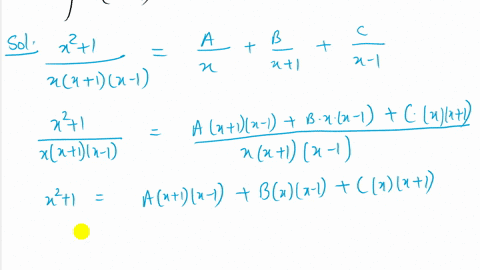 Sol: x²+1 / x(x+1)(x-1) = A/x + B/x+1 + C/x-1
x²+1 / x(x+1)(x-1) = A(x+1)(x-1) + B·x·(x-1) + C·(x)(x+1) / x(x+1)(x-1)
x²+1 = A(x+1)(x-1) + B(x)(x-1) + C(x)(x+1)